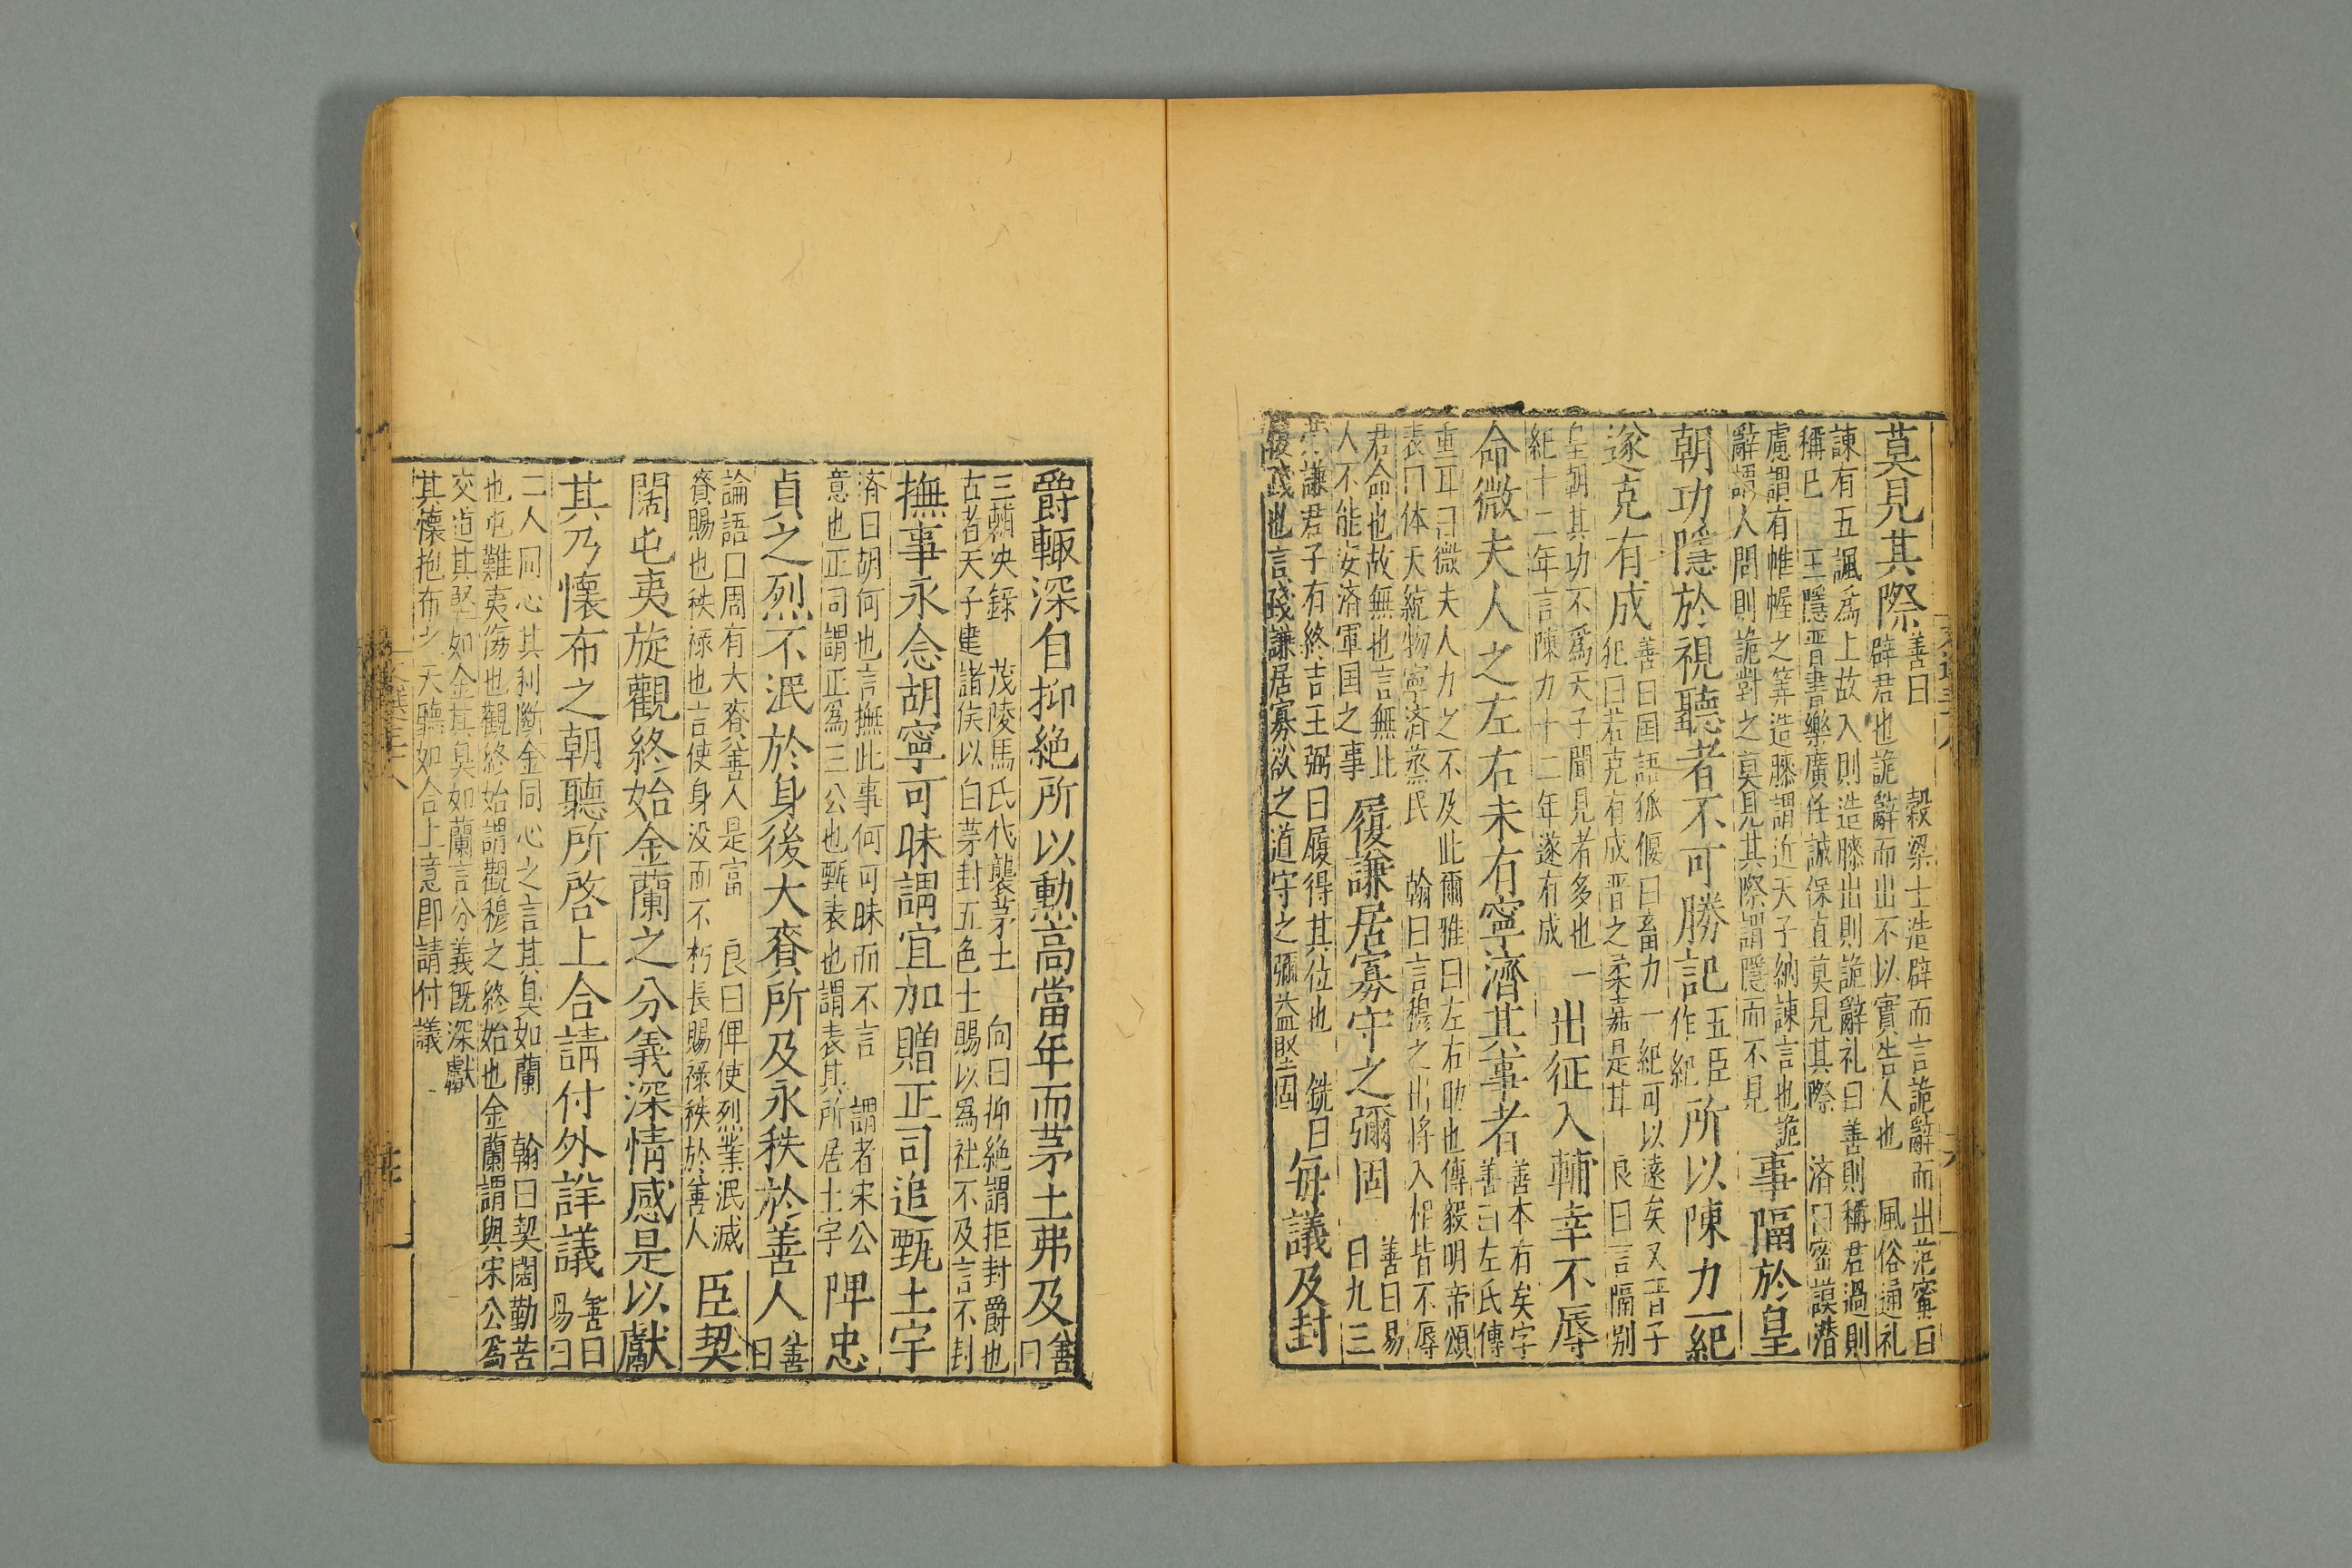 莫見其際善曰 穀梁士造辟而言詭辭而出范甯曰
辟君也詭辭而出不以實告人也 風俗通礼
諫有五諷爲上故入則造膝出則詭辭礼曰善則稱君過則
稱已 王隱晋書樂廣任誠保直莫見其際 济曰密謨潜
慮謂有帷幄之筭造膝謂近天子納諫言也詭
辭謂人問則詭對之莫見其際謂隱而不見
事隔於皇
朝功隱於視聽者不可勝記五臣作紀
所以陳力一紀
遂克有成善曰国語狐偃曰畜力一紀可以遠矣又晋子
犯曰若克有成晋之柔嘉是甘 良曰言隔别
皇朝其功不爲天子聞見者多也一
紀十二年言陳力十二年遂有成
出征入輔幸不辱
命微夫人之左右未有寧濟其事者善本有矣字
善曰左氏傳
重耳曰微夫人力之不及此爾雅曰左右助也傅毅明帝頌
表曰体天統物寧济蒸民 翰曰言穆之出將入相皆不辱
君命也故無也言無此
人不能安済軍国之事
履謙居寡守之彌固 善曰易
曰九三
勞謙君子有終吉王弼曰履得其位也 銑曰
履踐也言踐謙居寡欲之道守之彌益堅固
每議及封
爵輙深自抑絶所以勳高當年而茅土弗及善
曰
三輔决録 茂陵馬氏代襲茅土 向曰抑絶謂拒封爵也
古者天子建諸侯以白茅封五色土賜以爲社不及言不封
撫事永念胡寧可昧謂宜加贈正司追甄土宇
济曰胡何也言撫此事何可昧而不言 謂者宋公
意也正司謂正爲三公也甄表也謂表其所居土宇
俾忠
貞之烈不泯於身後大賚所及永秩於善人善
曰
論語曰周有大賚善人是富 良曰俾使烈業泯滅
賚賜也秩禄也言使身没而不朽長賜禄秩於善人
臣契
闊屯夷旋觀終始金蘭之分義深情感是以獻
其乃懷布之朝聽所啓上合請付外詳議善曰
易曰
二人同心其利斷金同心之言其臭如蘭 翰曰契闊勤苦
也屯難夷傷也觀終始謂觀穆之終始也金蘭謂與宋公爲
交道其堅如金其臭如蘭言分義既深獻
其懐抱布之天聽如合上意即請付議